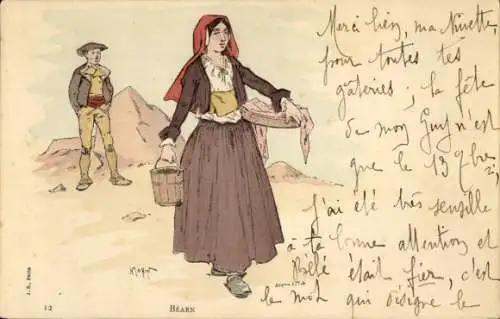 Merci bien, ma Ninette,
pour toutes tes
gâteries ; la fête
de mon Guy n'est
que le 13 9bre
J'ai été très sensible
à ta bonne attention et
Bébé était fier, c'est
le mot qui désigne le
J. R. PARIS
12
BÉARN